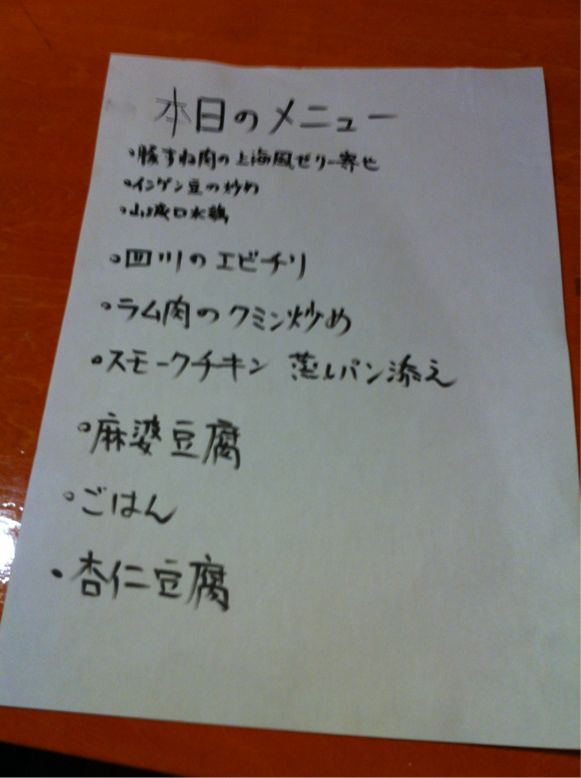 本日のメニュー
・豚すね肉の上海風ゼリー寄せ
・インゲン豆の炒め
・山城口水鶏
・四川のエビチリ
・ラム肉のクミン炒め
・スモークチキン 蒸しパン添え
・麻婆豆腐
・ごはん
・杏仁豆腐